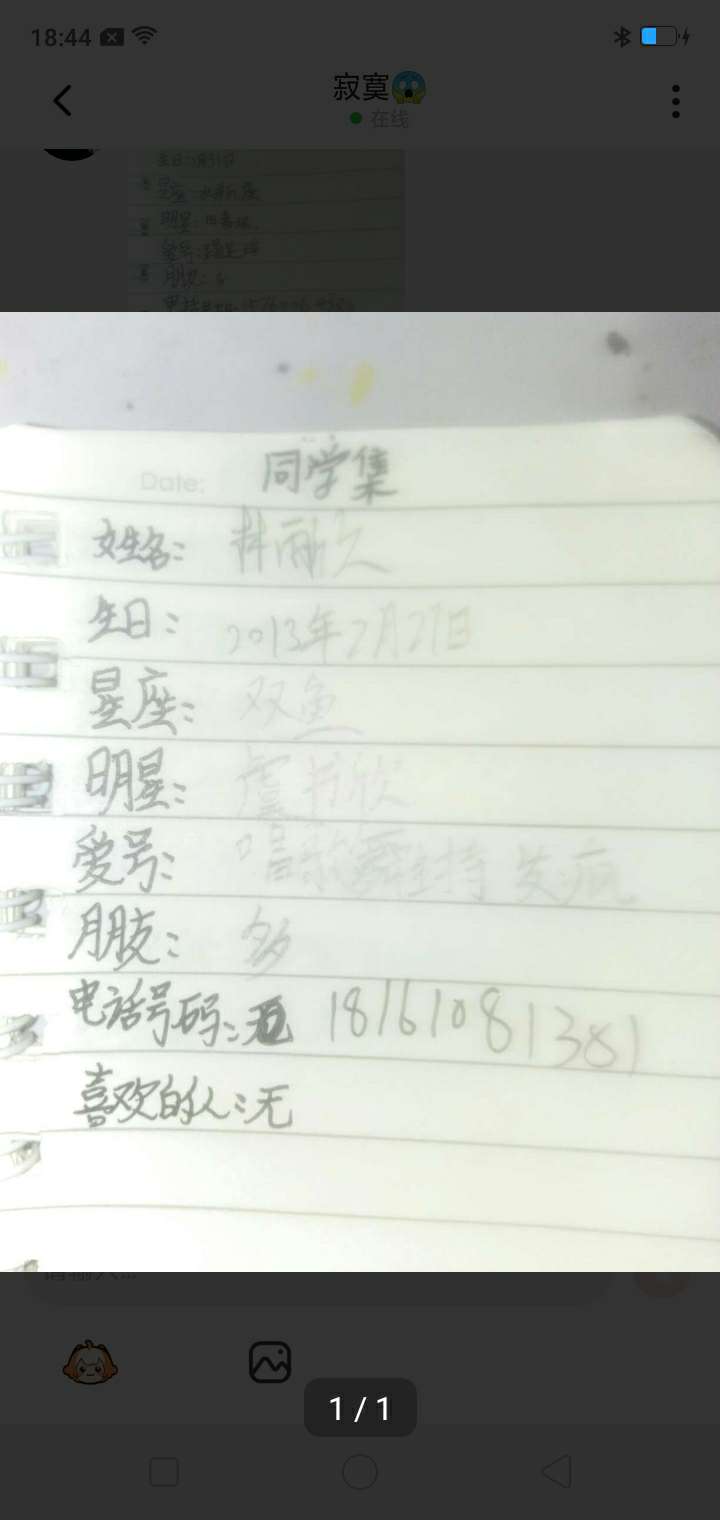 18:44
寂寞😱
在线
Date: 同学集
姓名:
生日: 2013年2月27日
星座: 双鱼
明星: 虞书欣
爱号: 唱歌舞主持 发疯
朋友: 多
电话号码:无 18161081381
喜欢的人:无
1 / 1